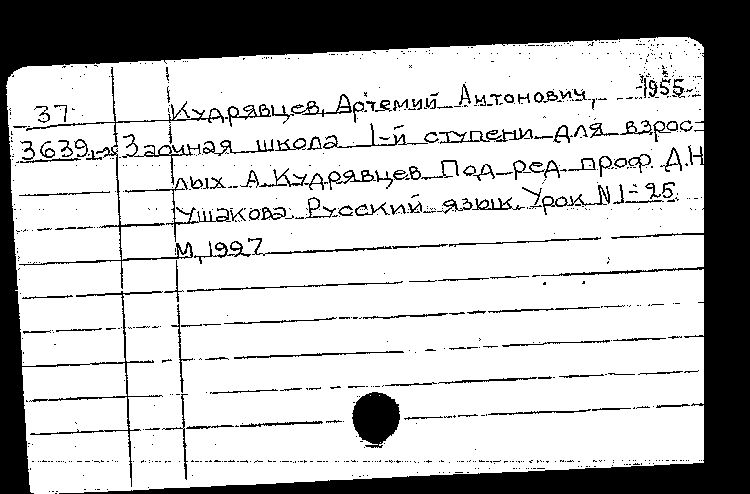 37 Кудрявцев, Артемий Антонович, -1955-
3639 Заочная школа 1-й ступени для взрос-
лых А. Кудрявцев. Под ред проф Д.Н
Ушакова. Русский язык. Урок N 1-25
М, 1927